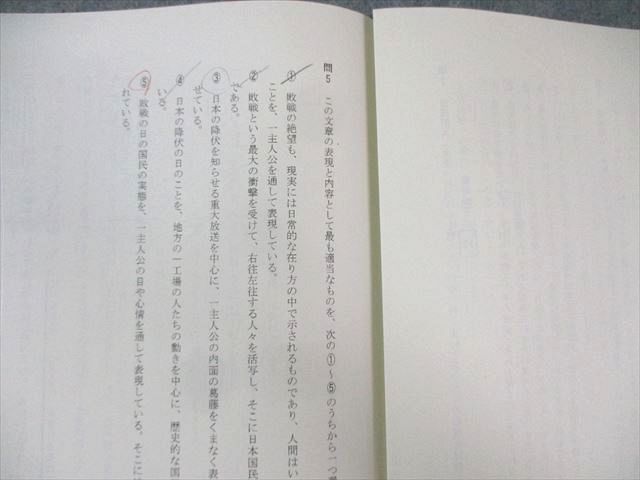 問5 この文章の表現と内容として最も適当なものを、次の①～⑤のうちから一つ
① 敗戦の絶望も、現実には日常的な在り方の中で示されるものであり、人間はい
ことを、一主人公を通して表現している。
② 敗戦という最大の衝撃を受けて、右往左往する人々を活写し、そこに日本国民
である。
③ 日本の降伏を知らせる重大放送を中心に、一主人公の内面の葛藤をくまなく表
せている。
④ 日本の降伏の日のことを、地方の一工場の人たちの動きを中心に、歴史的な国
いる。
⑤ 敗戦の日の国民の実態を、一主人公の目や心情を通して表現している。そこに
れている。